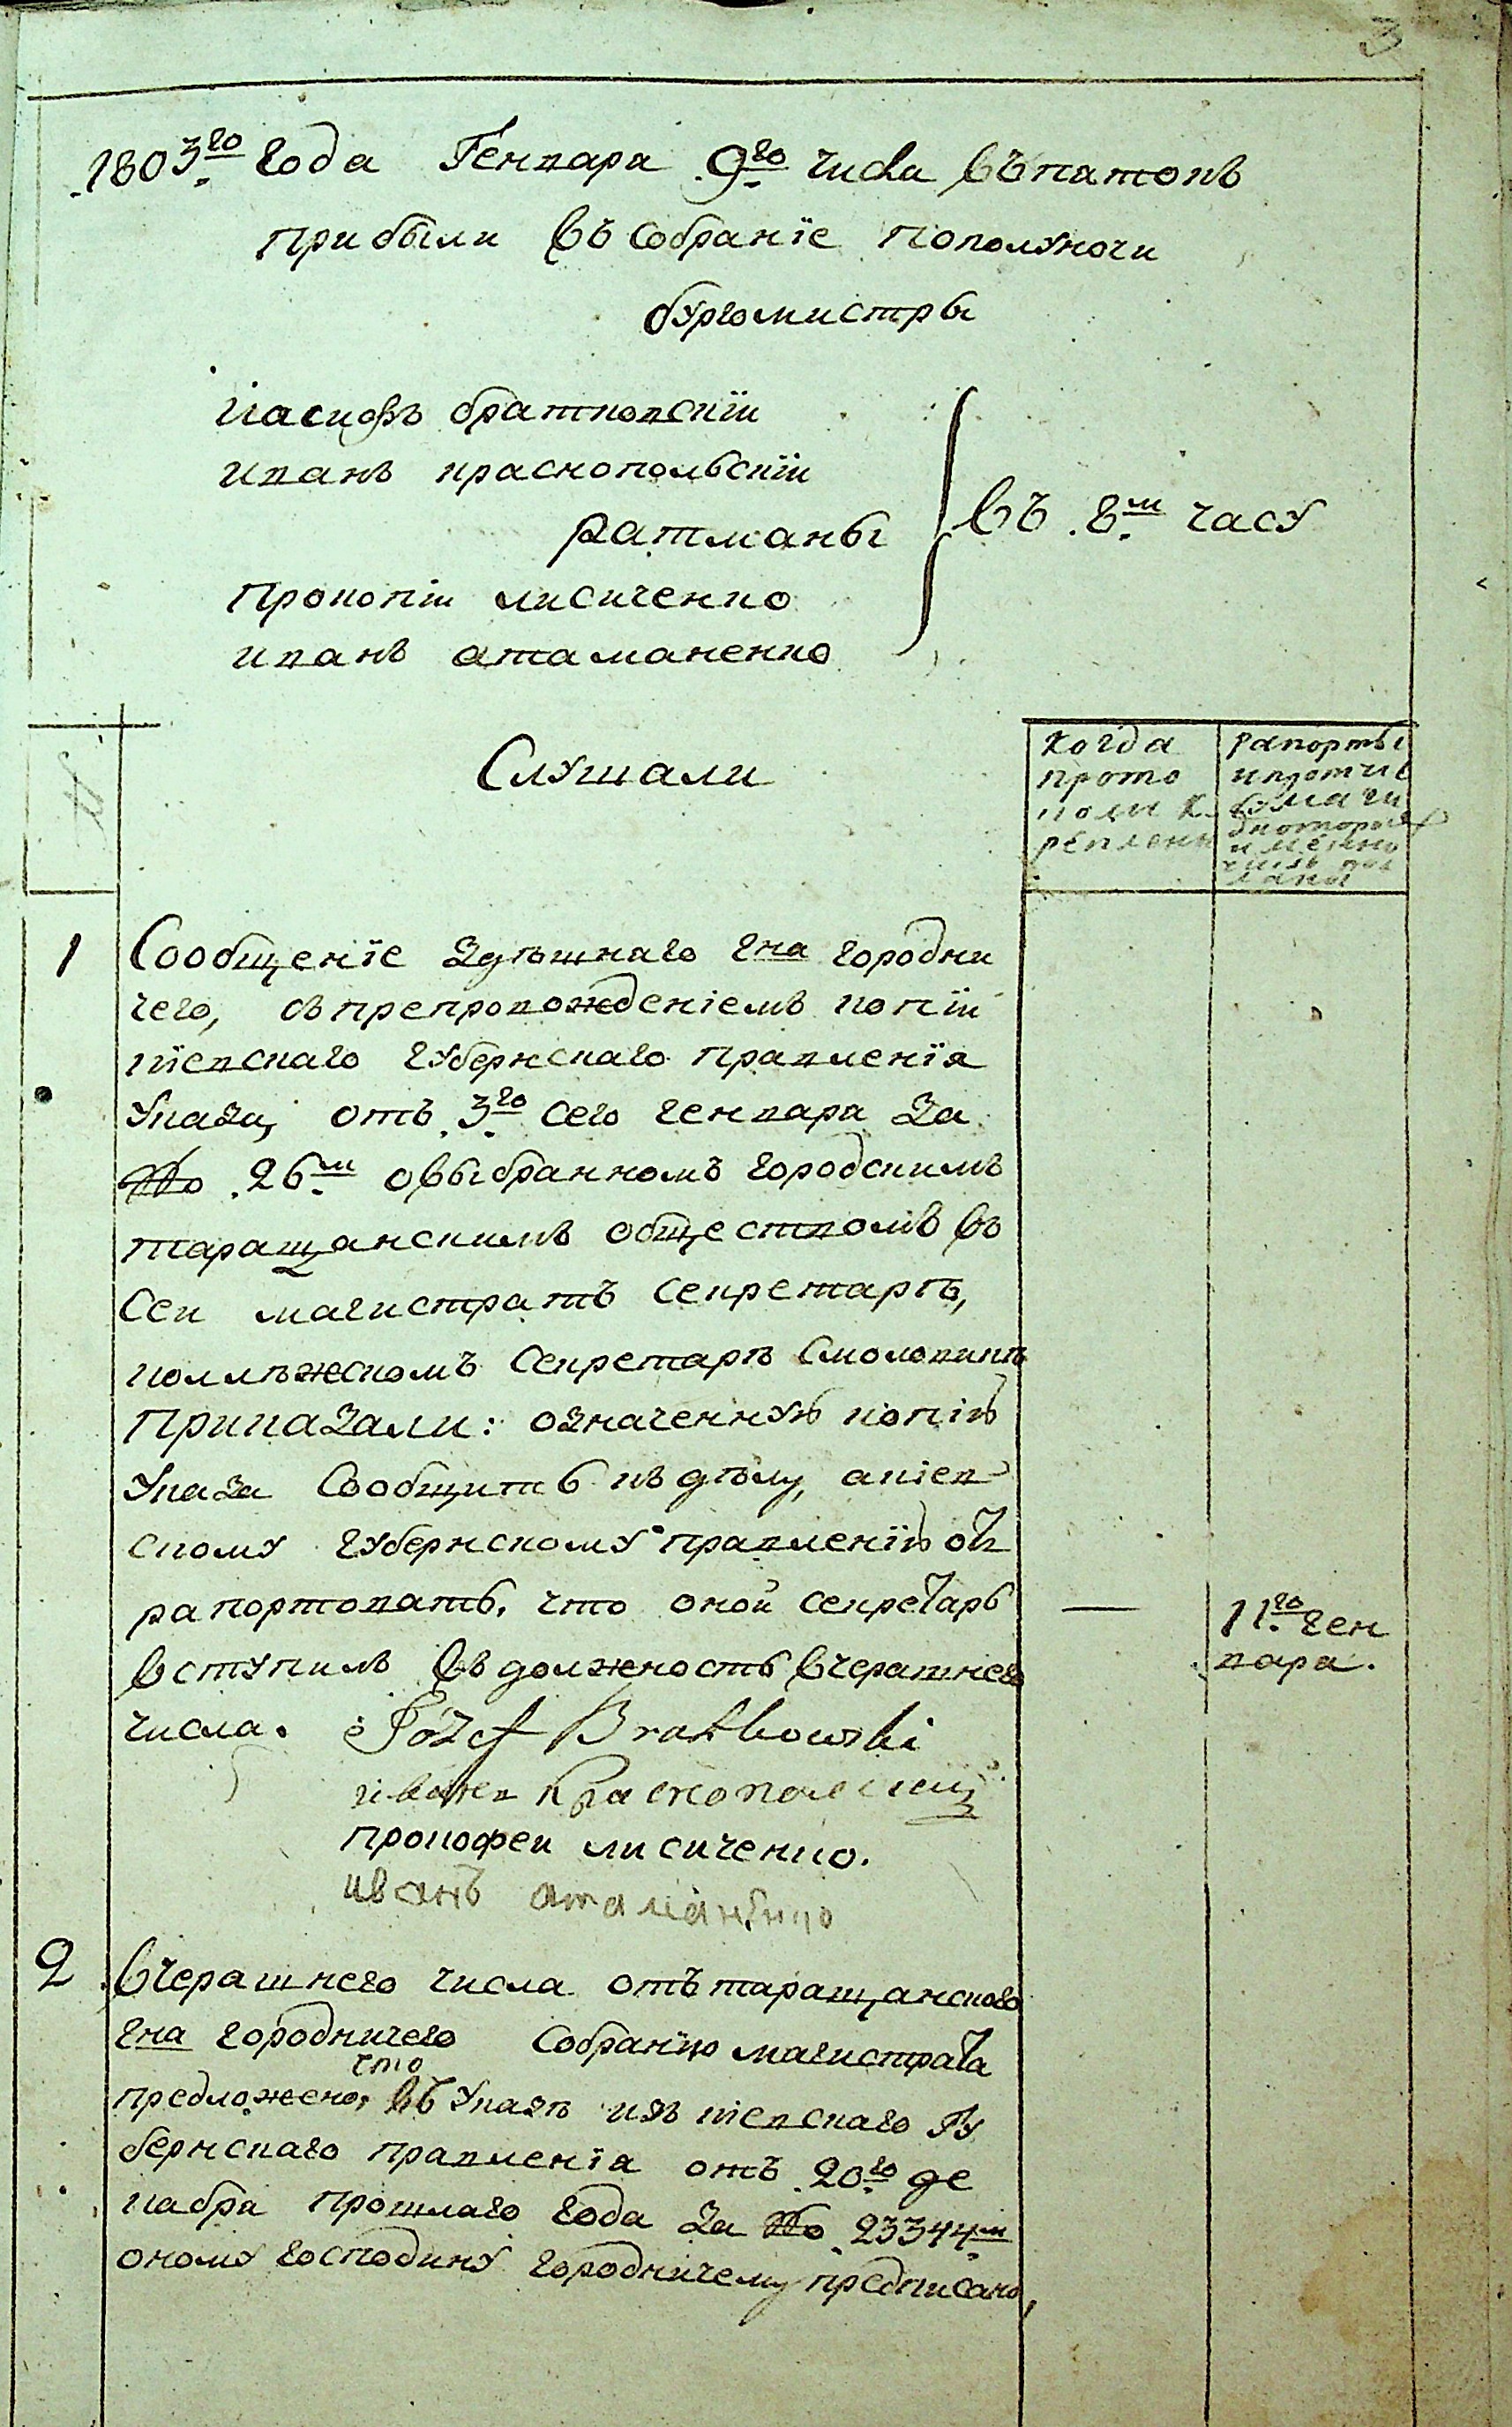 3
1803го года Генваря 9го числа въ пятокъ
прибыли въ собранїе пополуночи
бургомистры
иасифъ братковскїи
иванъ краснопольскїи
ратманы
прокопїи лисиченко
иванъ атаманенко
въ 8м часу
№
Слушали
когда
прото
колы к
реплены
рапорты
и протчие
бумаги
1
Сообщенїе здѣшнаго гна городни
чего, съ препровожденїемъ копїи
кїевскаго губернскаго правленїя
указа, отъ 3го сего генваря за
№о 26м о выбранномъ городскимъ
таращанскимъ обществомъ въ
сеи магистратъ секретарѣ,
коллѣжскомъ секретарѣ Смоловикѣ
приказали: означенную копїю
указа Сообщить къ дѣлу, а кїев
скому губернскому правленїю от
рапортовать, что оной секретарь
вступилъ въ должность вчерашнего
числа.
11го ген
варя.
Józef Bratkowski
иванъ Краснопольский
прокофеи лисиченко.
иванъ атаманенко
2
вчерашнего числа отъ таращанскаго
гна городничего собранїю магистрата
что
предложено, въ указѣ изъ кїевскаго гу
бернскаго правленїя отъ 20го де
кабря прошлаго года за №о 23344м
оному господину городничему предписано,